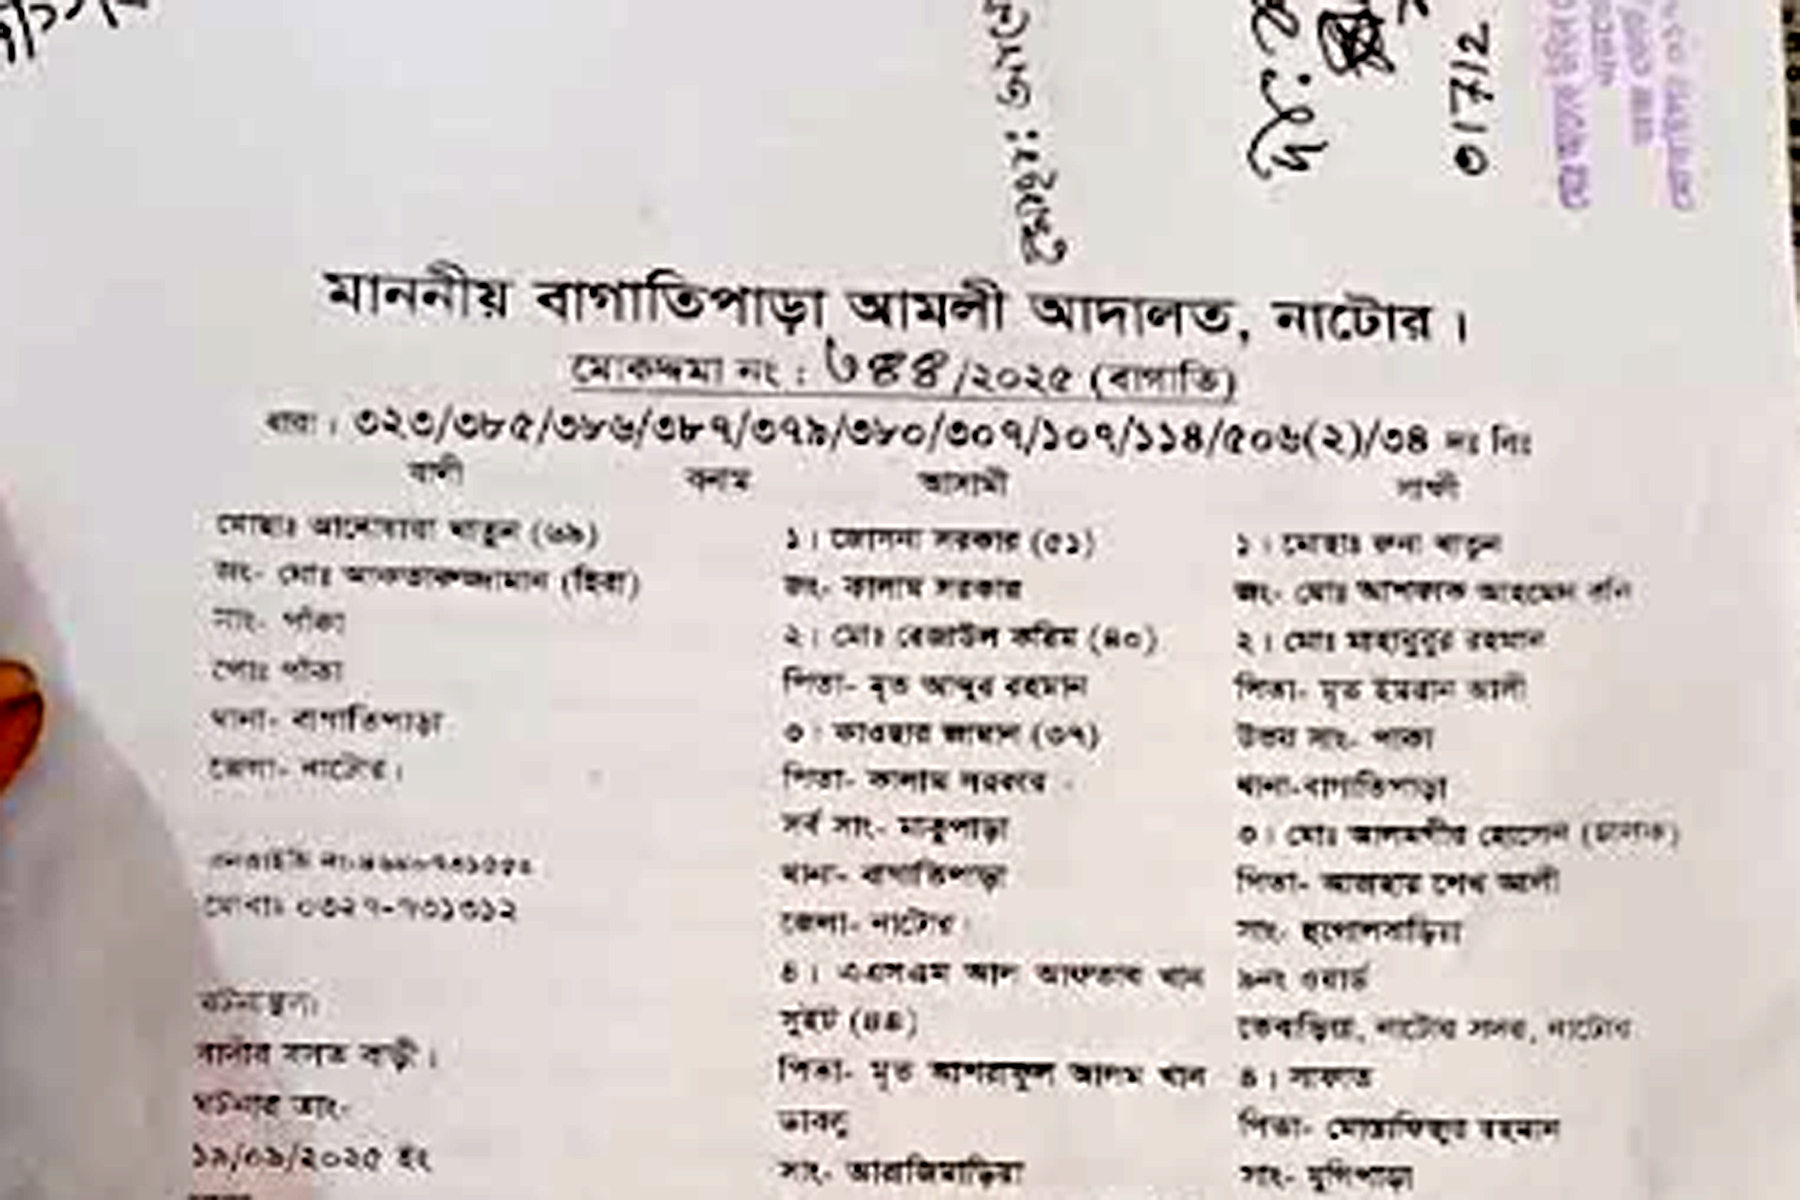 নাম্বার: জামে
দঃ বিঃ
0172
মাননীয় বাগাতিপাড়া আমলী আদালত, নাটোর।
মোকদ্দমা নং : ৩৪৪/২০২৫ (বাগাতি)
ধারা : ৩২৩/৩৮৫/৩৮৬/৩৮৭/৩৭৯/৩৮০/৩০৭/১০৭/১১৪/৫০৬(২)/৩৪ দঃ বিঃ
বাদী বনাম আসামী সাক্ষী
মোছাঃ আনোয়ারা খাতুন (৬৯)
জং- মোঃ আকতারুজ্জামান (হিরা)
সাং- পাঁকা
পোঃ পাঁকা
থানা- বাগাতিপাড়া
জেলা- নাটোর।
মোবাঃ ০৩২৭-৭৩১৩১২
ঘটনাস্থল:
বাদীর বসত বাড়ী।
ঘটনার তাং-
১৯/০৯/২০২৫ ইং
১। জোসনা সরকার (৫১)
জং- কালাম সরকার
২। মোঃ রেজাউল করিম (৪০)
পিতা- মৃত আব্দুর রহমান
৩। কাওছার জামান (৩৭)
পিতা- কালাম সরকার
সর্ব সাং- মাকুপাড়া
থানা- বাগাতিপাড়া
জেলা- নাটোর।
৪। এএসএম আল আফতাব খান
সুইট (৪৪)
পিতা- মৃত আশরাফুল আলম খান
ডাবলু
সাং- আরাজিমাড়িয়া
১। মোছাঃ রুনা খাতুন
জং- মোঃ আশফাক আহমেদ রনি
২। মোঃ মাহাবুবুর রহমান
পিতা- মৃত ইমরান আলী
উভয় সাং- পাকা
থানা-বাগাতিপাড়া
৩। মোঃ আলমগীর হোসেন (চালক)
পিতা- আজহার শেখ আলী
সাং- হুগোলবাড়িয়া
৯নং ওয়ার্ড
তেবাড়িয়া, নাটোর সদর, নাটোর
৪। সাফাত
পিতা- মোস্তাফিজুর রহমান
সাং- মুন্সিপাড়া